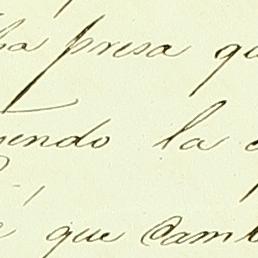 presa qu
endo la
que camb